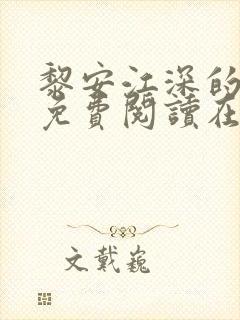 黎安江深的
免費閱讀在
文戴巍